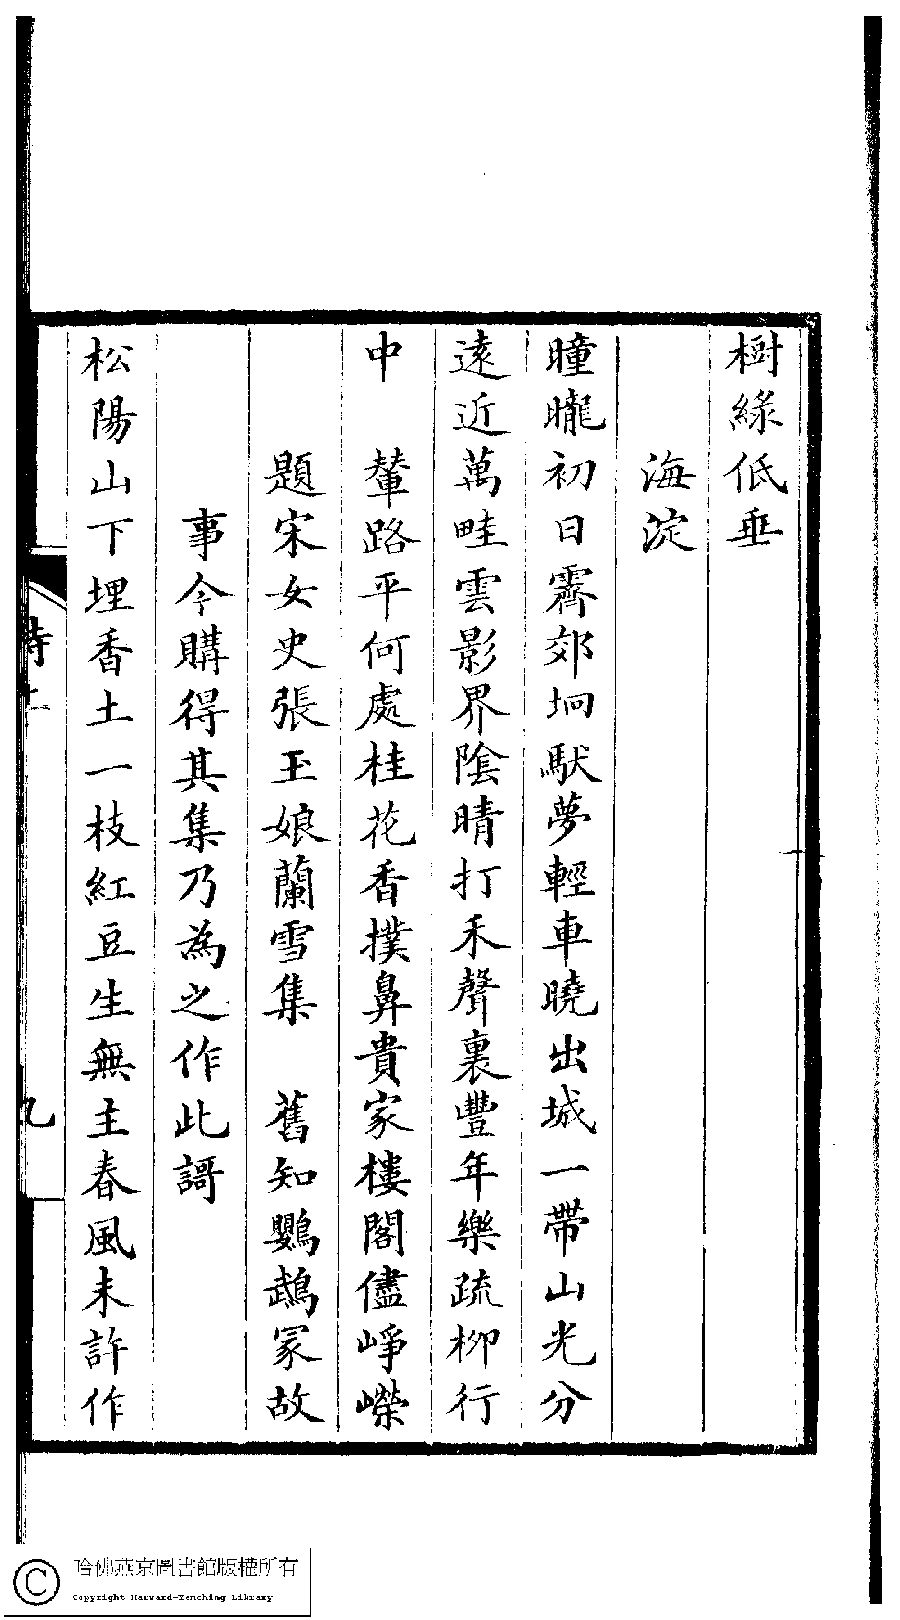 樹綠低垂
海淀
曈曨初日霽郊坰馱夢輕車曉出城一帶山光分
遠近萬畦雲影界陰晴打禾聲裏豐年樂疏柳行
中　輦路平何處桂花香撲鼻貴家樓閣儘崢嶸
題宋女史張玉娘蘭雪集　舊知鸚鵡冢故
事今購得其集乃為之作此謌
松陽山下埋香土一枝紅豆生無主春風未許作
詩
九
哈佛燕京圖書館版權所有
Copyright Harvard-Yenching Library